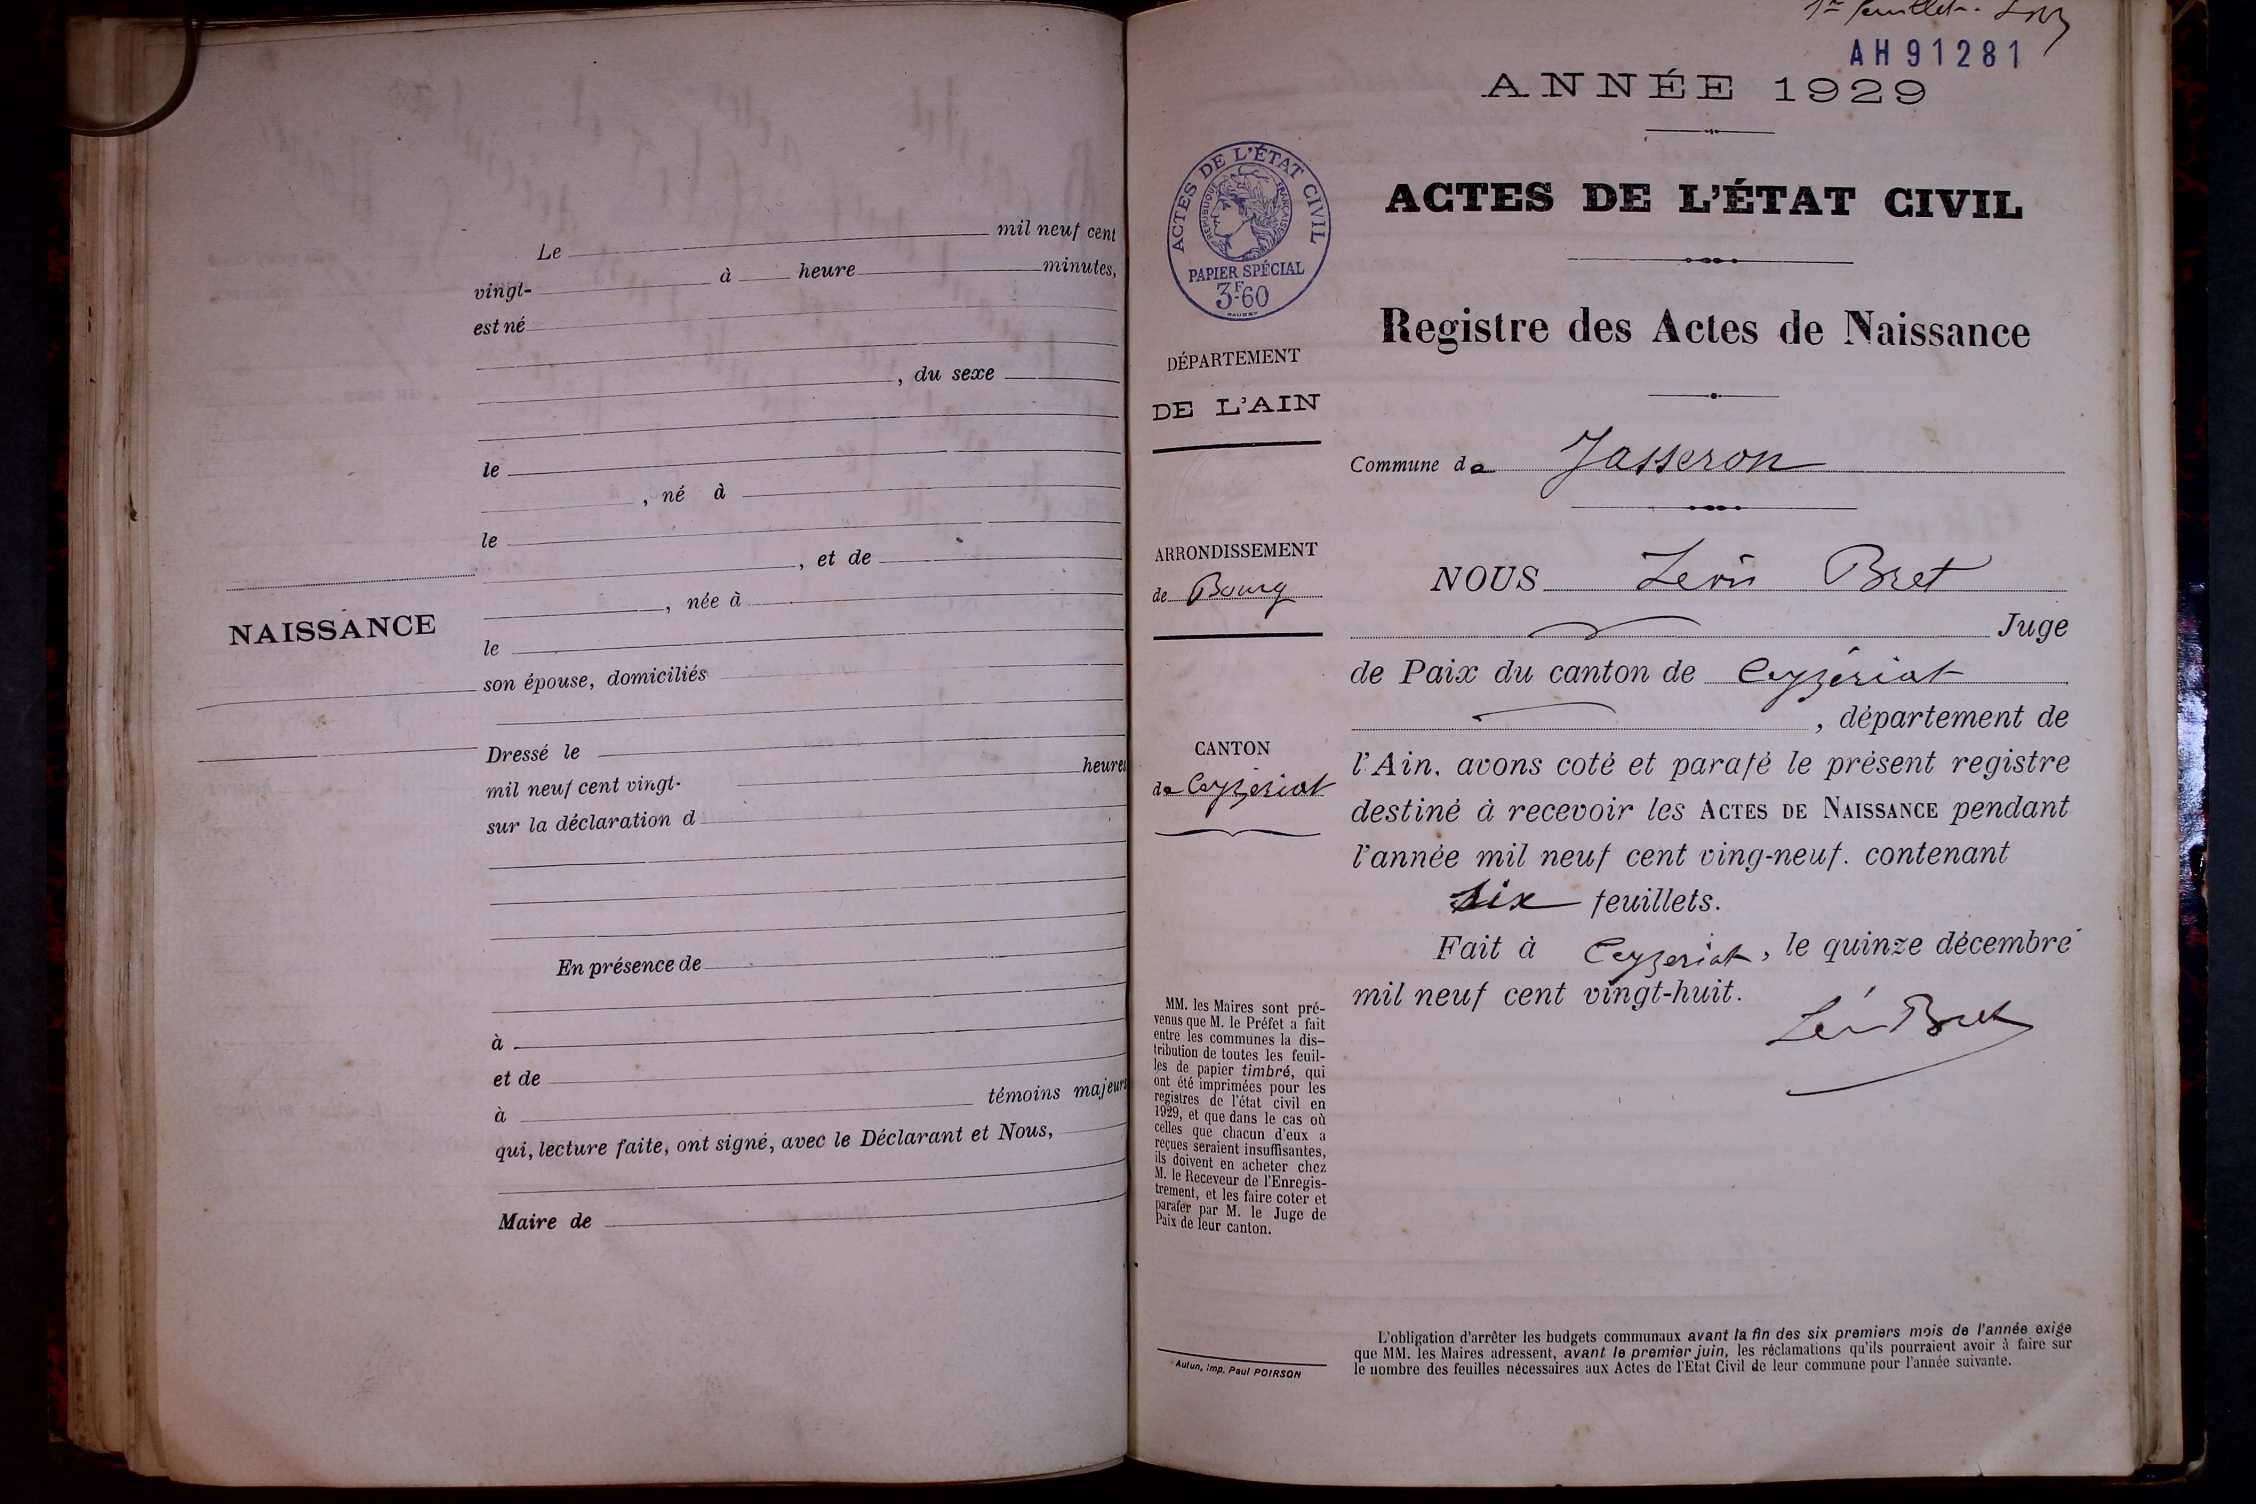 Le mil neuf cent
vingt- à heure minutes,
est né
, du sexe
le
, né à
le
, et de
, née à
NAISSANCE
le
son épouse, domiciliés
Dressé le
mil neuf cent vingt- heures
sur la déclaration d
En présence de
à
et de
à témoins majeurs
qui, lecture faite, ont signé, avec le Déclarant et Nous,
Maire de
1er feuillet.
AH 91281
ANNÉE 1929
ACTES DE L'ÉTAT CIVIL
ACTES DE L'ÉTAT CIVIL
RÉPUBLIQUE FRANÇAISE
PAPIER SPÉCIAL
3F.60
Registre des Actes de Naissance
DÉPARTEMENT
DE L'AIN
Commune de Jasseron
ARRONDISSEMENT
de Bourg
NOUS Léon Bret
Juge
de Paix du canton de Ceyzériat
, département de
CANTON
de Ceyzériat
l'Ain, avons coté et parafé le présent registre
destiné à recevoir les ACTES DE NAISSANCE pendant
l'année mil neuf cent ving-neuf. contenant
six feuillets.
Fait à Ceyzeriat, le quinze décembre
mil neuf cent vingt-huit.
Léon Bret
MM. les Maires sont pré-
venus que M. le Préfet a fait
entre les communes la dis-
tribution de toutes les feuil-
les de papier timbré, qui
ont été imprimées pour les
registres de l'état civil en
1929, et que dans le cas où
celles que chacun d'eux a
reçues seraient insuffisantes,
ils doivent en acheter chez
M. le Receveur de l'Enregis-
trement, et les faire coter et
parafer par M. le Juge de
Paix de leur canton.
Autun, imp. Paul POIRSON
L'obligation d'arrêter les budgets communaux avant la fin des six premiers mois de l'année exige
que MM. les Maires adressent, avant le premier juin, les réclamations qu'ils pourraient avoir à faire sur
le nombre des feuilles nécessaires aux Actes de l'Etat Civil de leur commune pour l'année suivante.